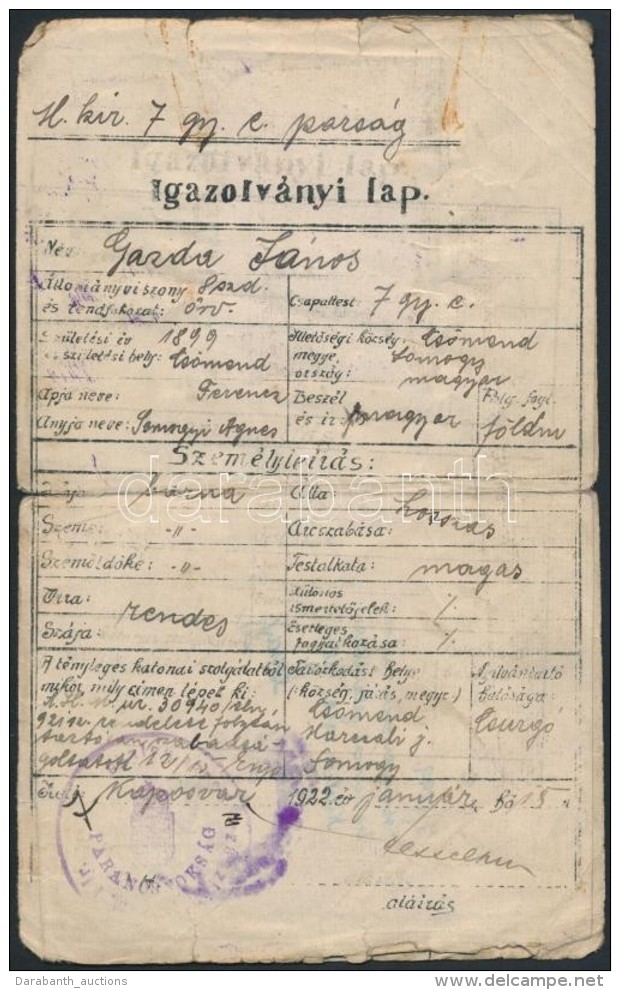 M. kir. 7 gy. e. parság
Igazolványi lap.
Név: Gazda János
Állományviszony Szd.
és rendfokozat: őrv.
Csapattest: 7 gy. e.
Születési év 1899
és születési hely: Csömend
Illetőségi község, Csömend
megye, Somogy
ország: magyar
Apja neve: Ferencz
Anyja neve: Somogyi Ágnes
Beszél
és ír: magyar
Polg. fogl.
földm
Személyleírás:
Haja: barna
Álla: hosszas
Szeme: -"-
Arcszabása:
Szemöldöke: -"-
Testalkata: magas
Orra: rendes
Szája:
Különös
ismertetőjelek: /.
Esetleges
fogyatkozása: /.
A tényleges katonai szolgálatból
mikor, mily címen lépett ki:
30940/eln.
921 sz. rendelet folytán
Tartózkodási helye
(:község, járás, megye:)
Csömend
Marcali j.
Somogy
Nyilvántartó
hatósága:
Csurgó
Kelt: Kaposvár, 1922. év január hó 15.
PARANCSNOKSÁG
aláírás
darabanth
Darabanth_auctions
delcampe.net